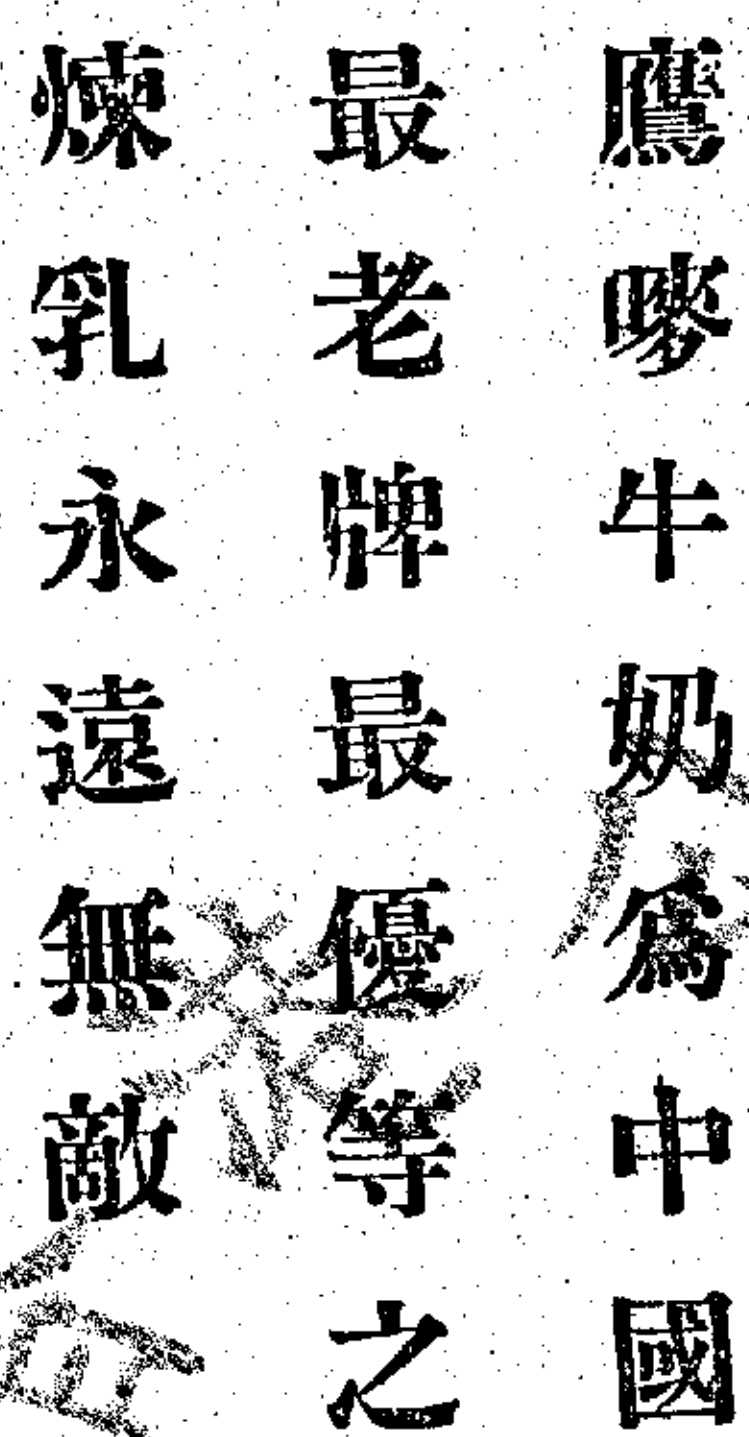 鷹嘜牛奶爲中國
最老牌最優等之
煉乳永遠無敵